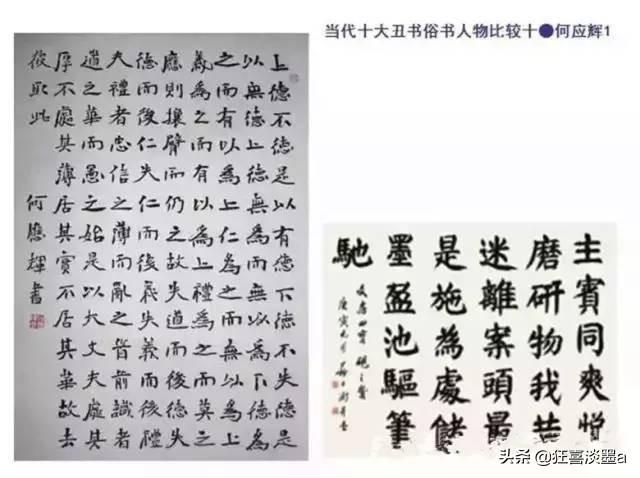 当代十大丑书俗书人物比较十●何应辉1
上德不德是以有德下德不失德是
以無德上德無為而無以為下德為
之而有以為上仁為之而無以為上
義為之而有以為上禮為之而莫之
應則攘臂而仍之故失道而後德失
德而後仁失仁而後義失義而後禮
夫禮者忠信之薄而亂之首前識者
道之華而愚之始是以大丈夫處其
厚不處其薄居其實不居其華故去
彼取此
何應輝書
主賓同爽悅
磨研物我
迷離案頭最
是施為處
墨盈池驅筆
馳
文房四寶硯之贊
庚寅九月
头条 @狂喜淡墨a